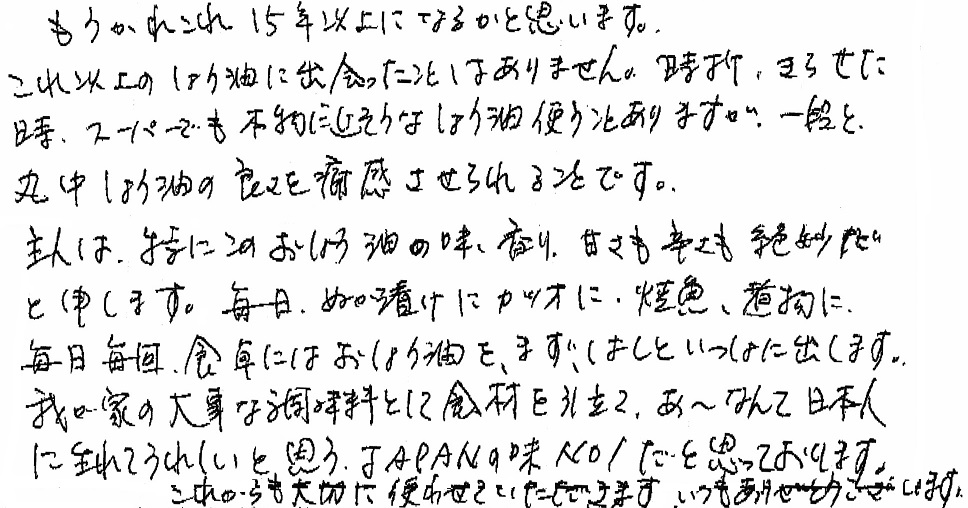 もうかれこれ15年以上になるかと思います。
これ以上のしょう油に出会ったことはありません。時折、きらせた
時、スーパーでも本物に近そうなしょう油使うことありますが、一段と、
丸中しょう油の良さを痛感させられることです。
主人は、特にこのおしょう油の味、香り、甘さも辛さも絶妙だ
と申します。毎日、ぬか漬けにカツオに、焼魚、煮物に、
毎日毎回、食卓にはおしょう油を、まず、はしといっしょに出します。
我が家の大事な調味料として食材を引立て、あ〜なんて日本人
に生れてうれしいと思う、JAPANの味NO1だと思っております。
これからも大切に使わせていただきます いつもありがとうございます。